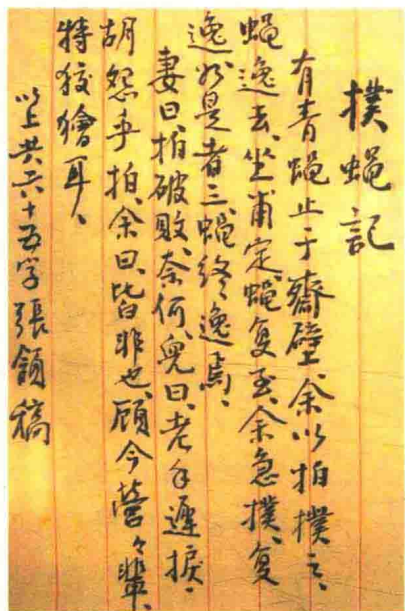 撲蠅記
有青蠅止于齋壁、余以拍撲之、
蠅逸去、坐甫定、蠅复至、余急撲、复
逸、如是者三、蠅終逸焉、
妻曰、拍破敗、奈何、兒曰、老手遲捩、
胡怨乎拍、余曰、皆非也、顧今營々輩、
特狡獪耳、
以上共六十五字 張頷稿